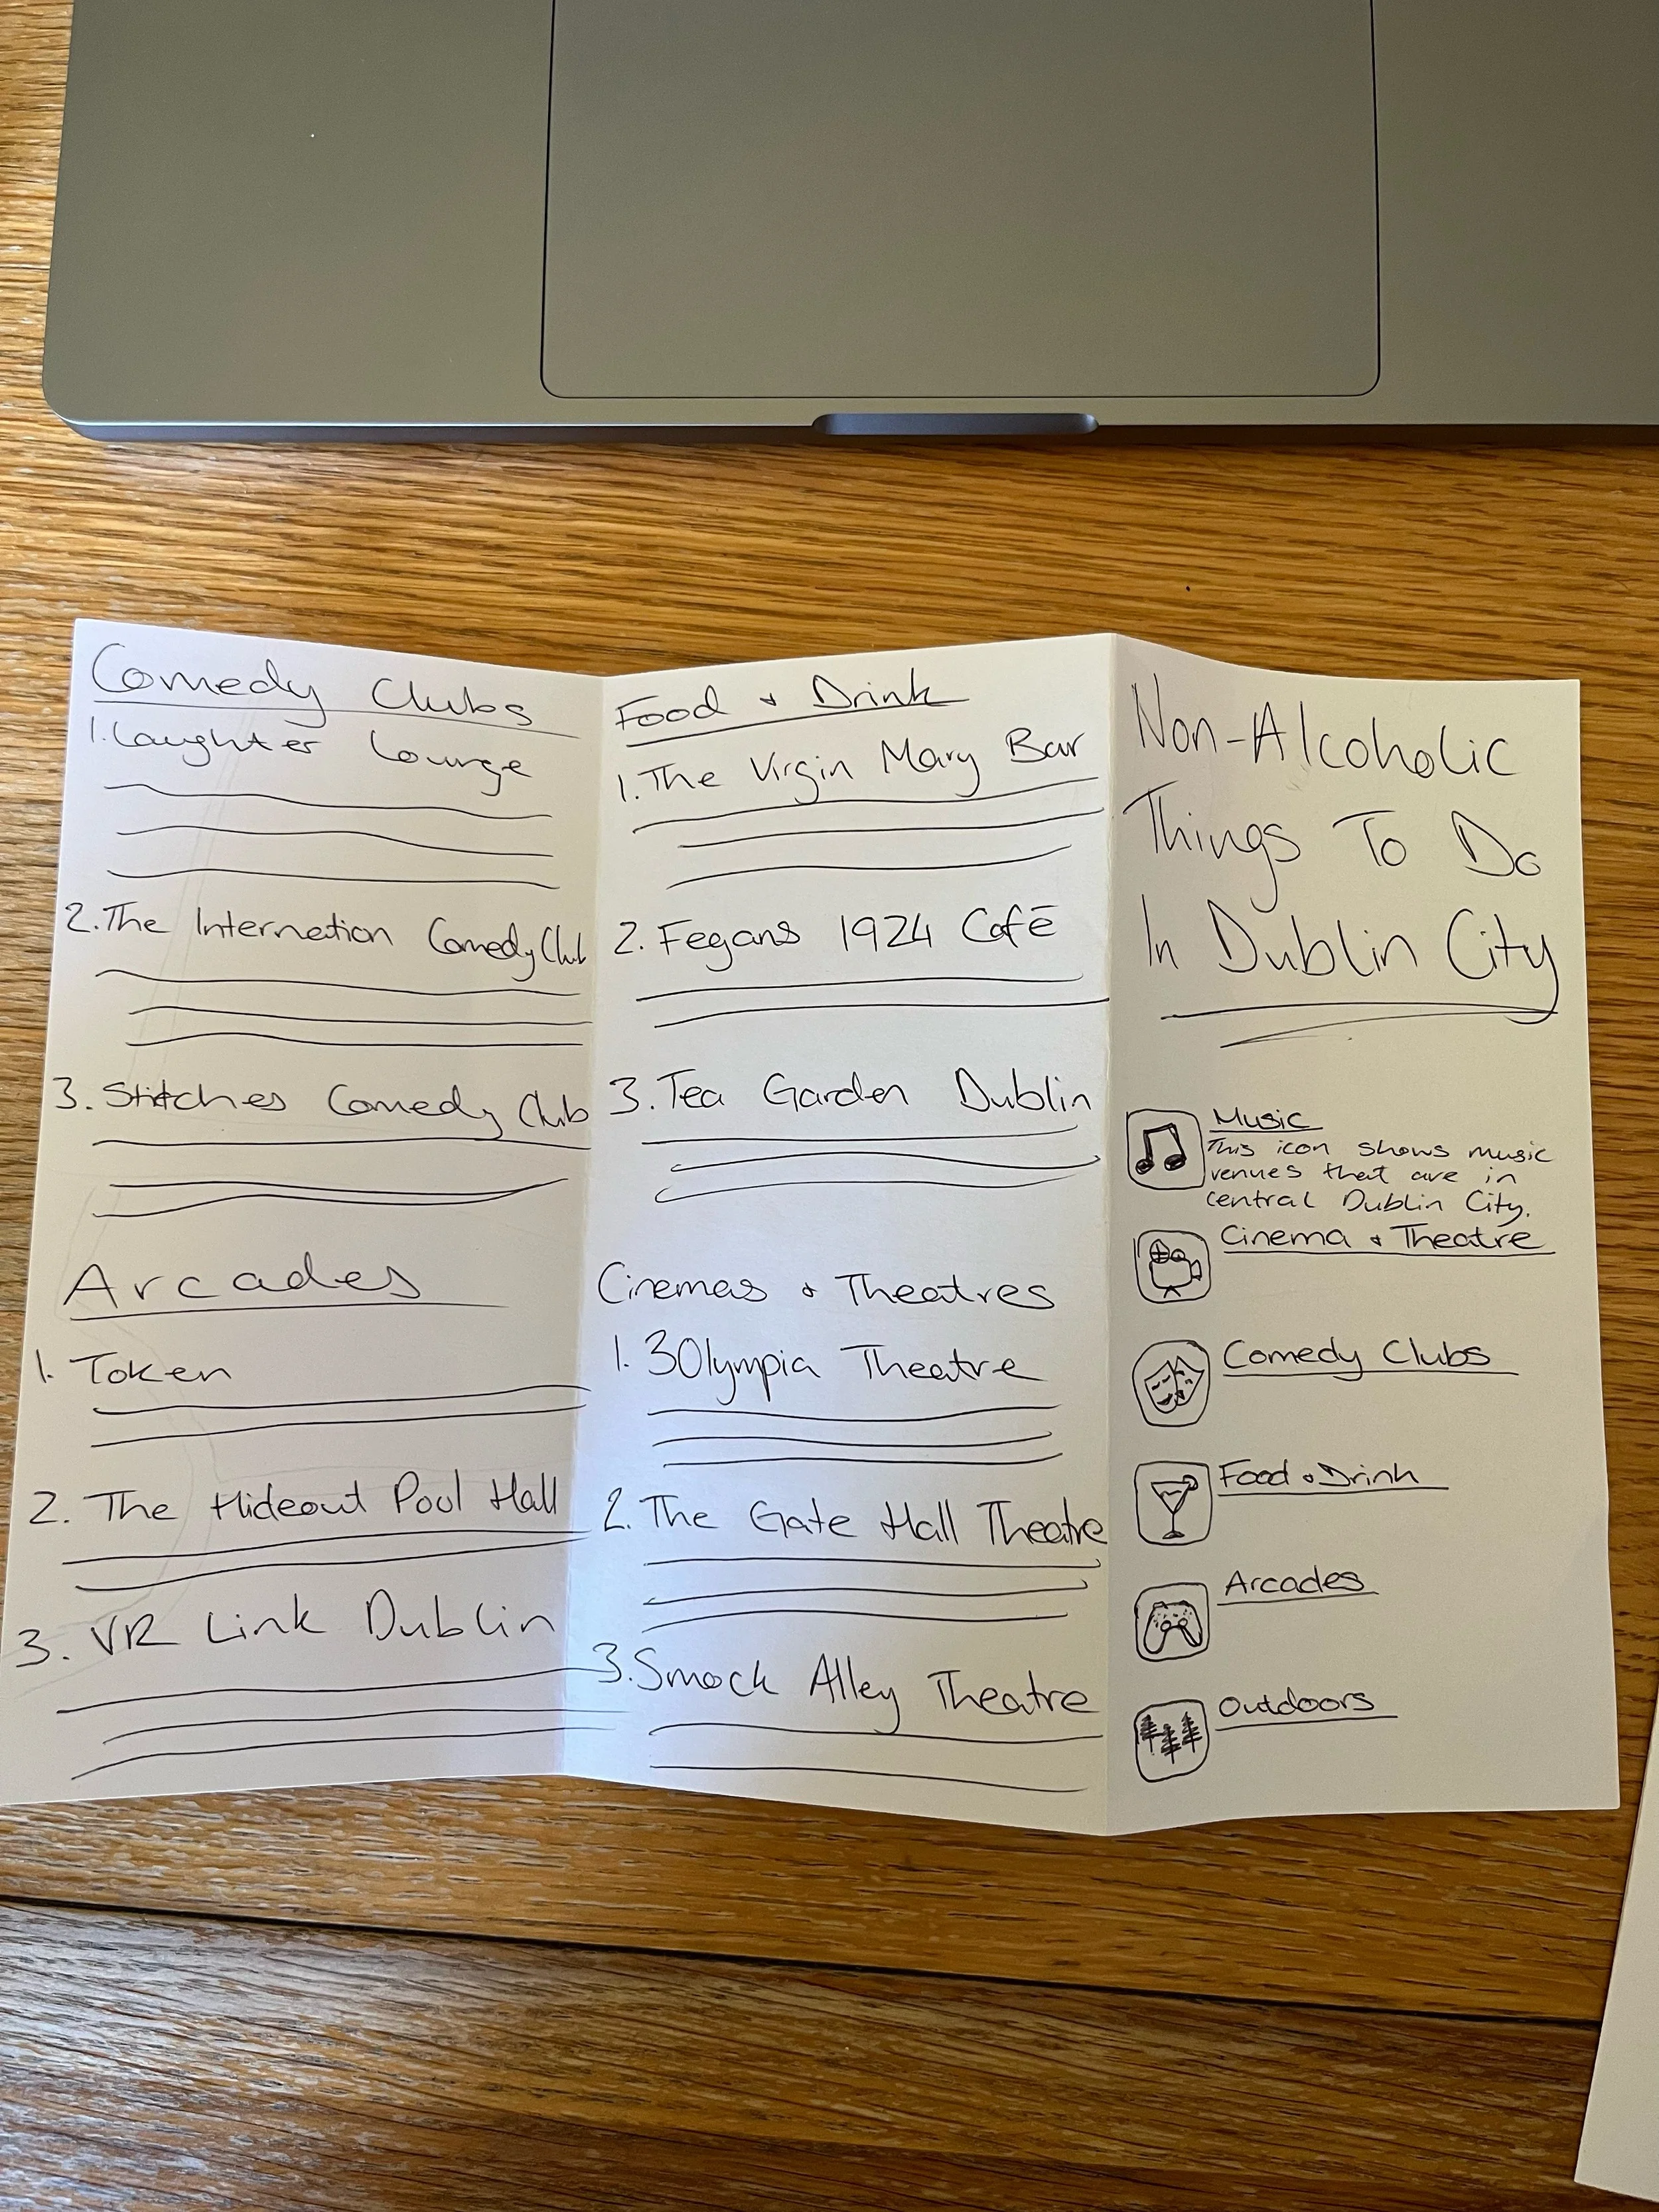 Comedy Clubs
1. Laughter Lounge
2. The Internetion Comedy Club
3. Stitches Comedy Club
Arcades
1. Token
2. The Hideout Pool Hall
3. VR Link Dublin
Food + Drink
1. The Virgin Mary Bar
2. Fegans 1924 Café
3. Tea Garden Dublin
Cinemas + Theatres
1. 3Olympia Theatre
2. The Gate Hall Theatre
3. Smock Alley Theatre
Non-Alcoholic
Things To Do
In Dublin City
Music
This icon shows music
venues that are in
central Dublin City.
Cinema + Theatre
Comedy Clubs
Food + Drink
Arcades
Outdoors